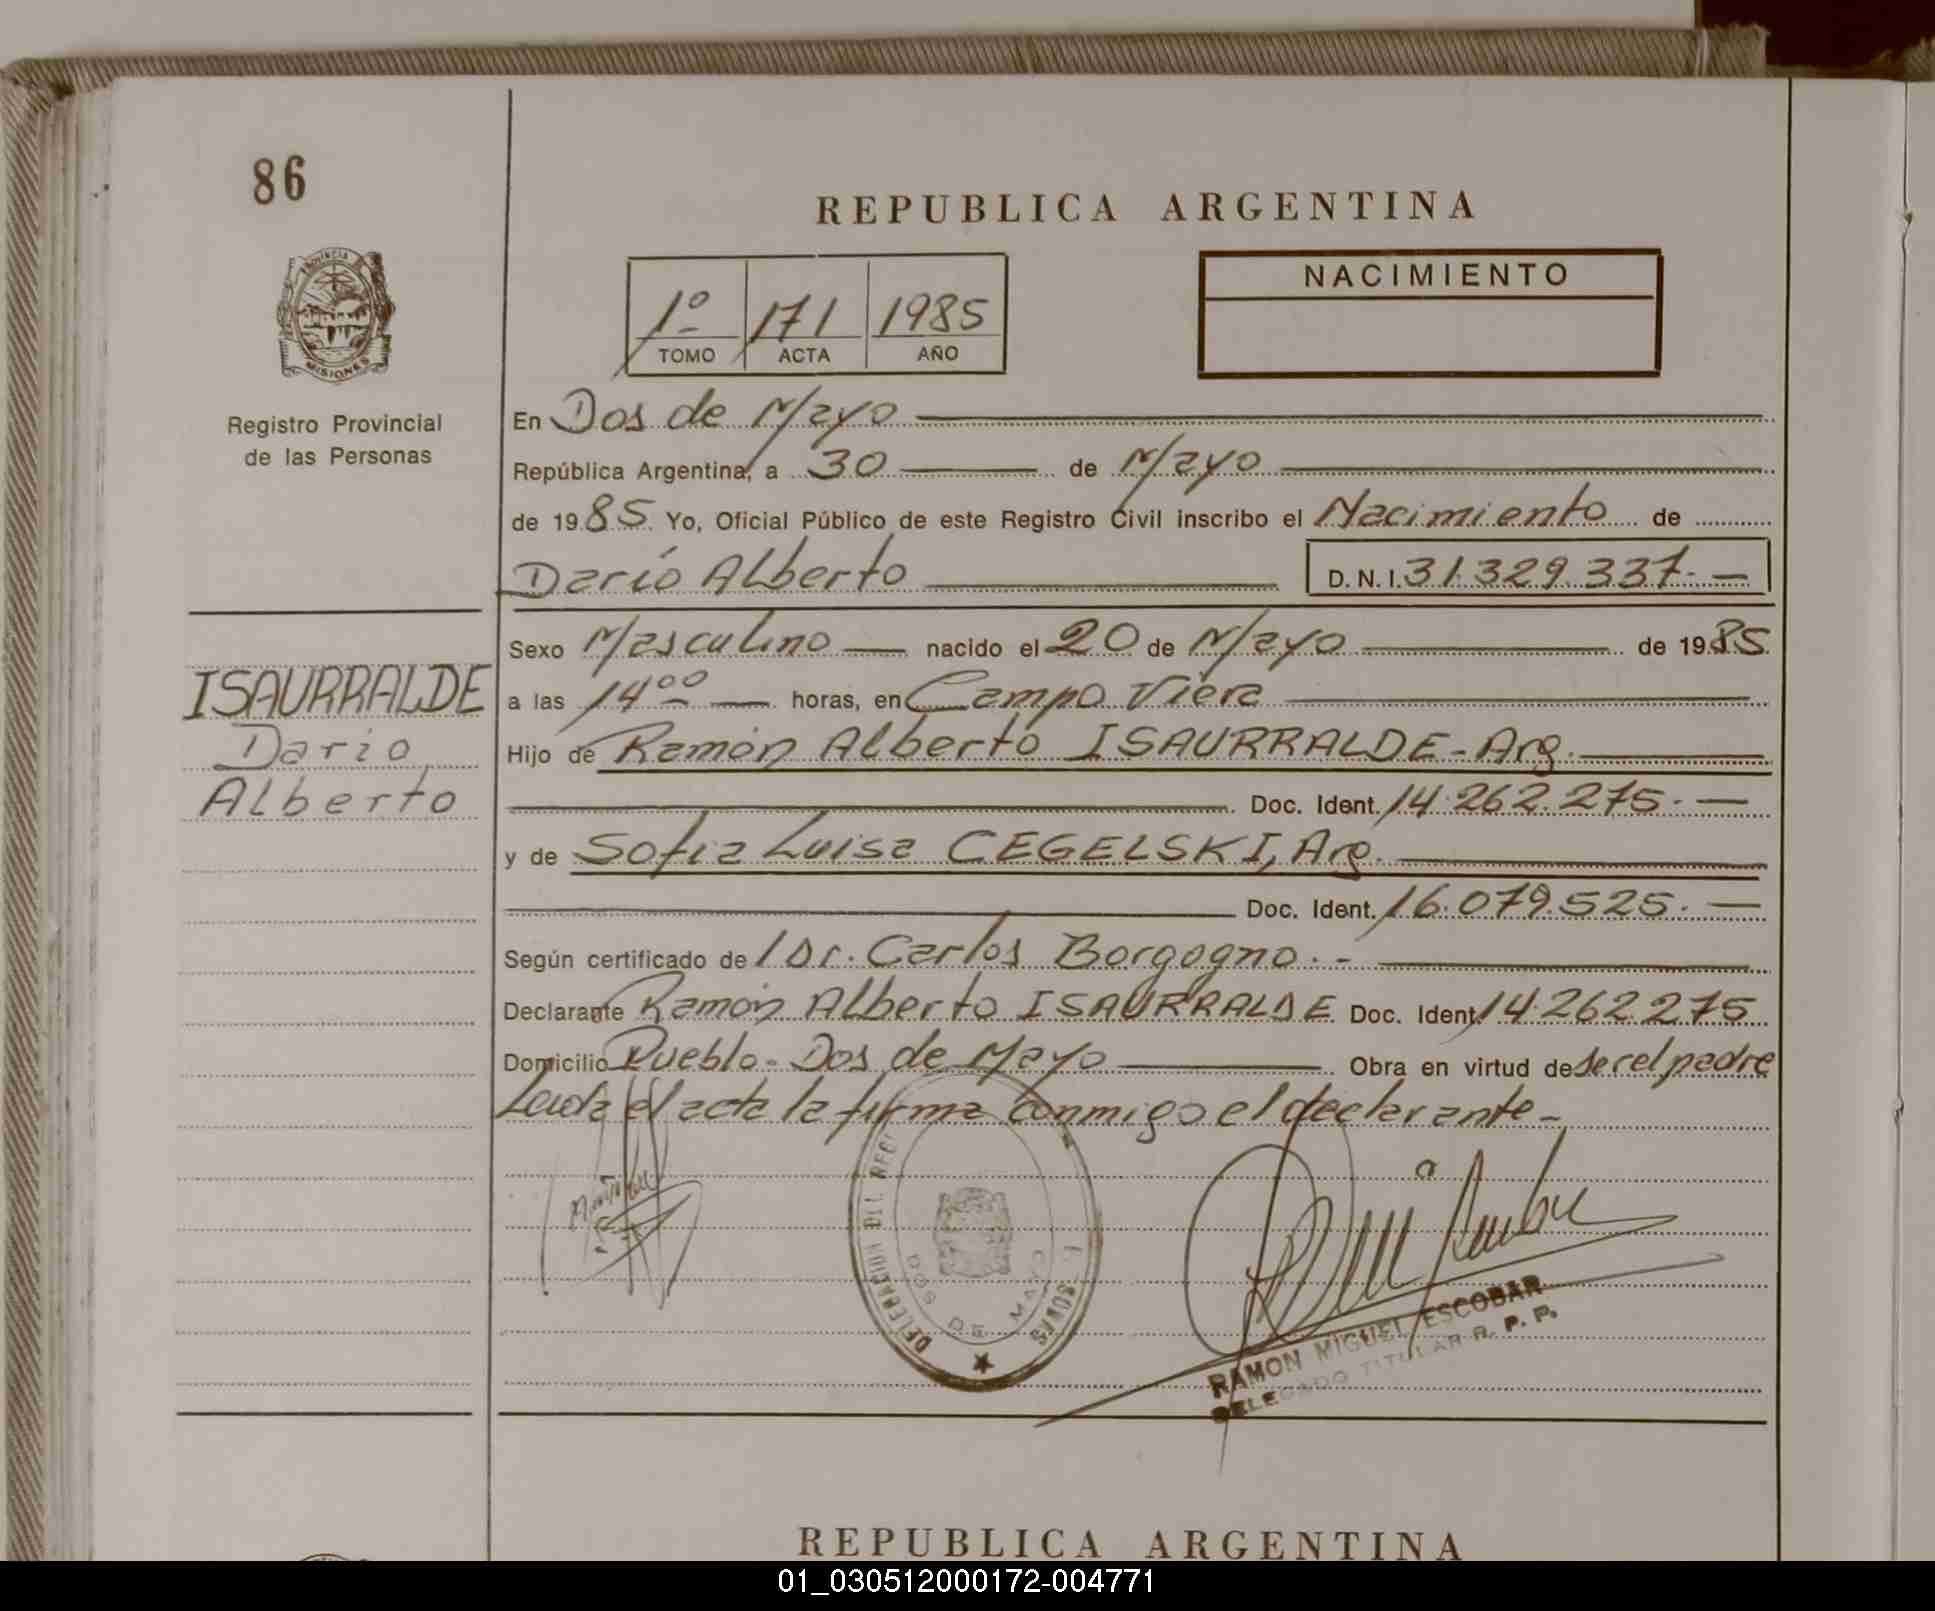 86
REPUBLICA ARGENTINA
PROVINCIA DE
MISIONES
Registro Provincial
de las Personas
1º 171 1985
TOMO ACTA AÑO
NACIMIENTO
En Dos de Mayo
República Argentina, a 30 de Mayo
de 1985 Yo, Oficial Público de este Registro Civil inscribo el Nacimiento de
Darío Alberto D.N.I. 31.329.337.-
ISAURRALDE
Dario
Alberto
Sexo Masculino nacido el 20 de Mayo de 1985
a las 14ºº horas, en Campo Viera
Hijo de Ramón Alberto ISAURRALDE-Arg.
Doc. Ident. 14.262.275.-
y de Sofia Luisa CEGELSKI, Arg.
Doc. Ident. 16.079.525.-
Según certificado de Dr. Carlos Borgogno.-
Declarante Ramón Alberto ISAURRALDE Doc. Ident. 14.262.275
Domicilio Pueblo-Dos de Mayo Obra en virtud de ser el padre
Leida el acta la firma conmigo el declarante-
DELEGACION DEL
DOS DE MAYO
RAMON MIGUEL ESCOBAR
DELEGADO TITULAR R. P. P.
REPUBLICA ARGENTINA
01_030512000172-004771